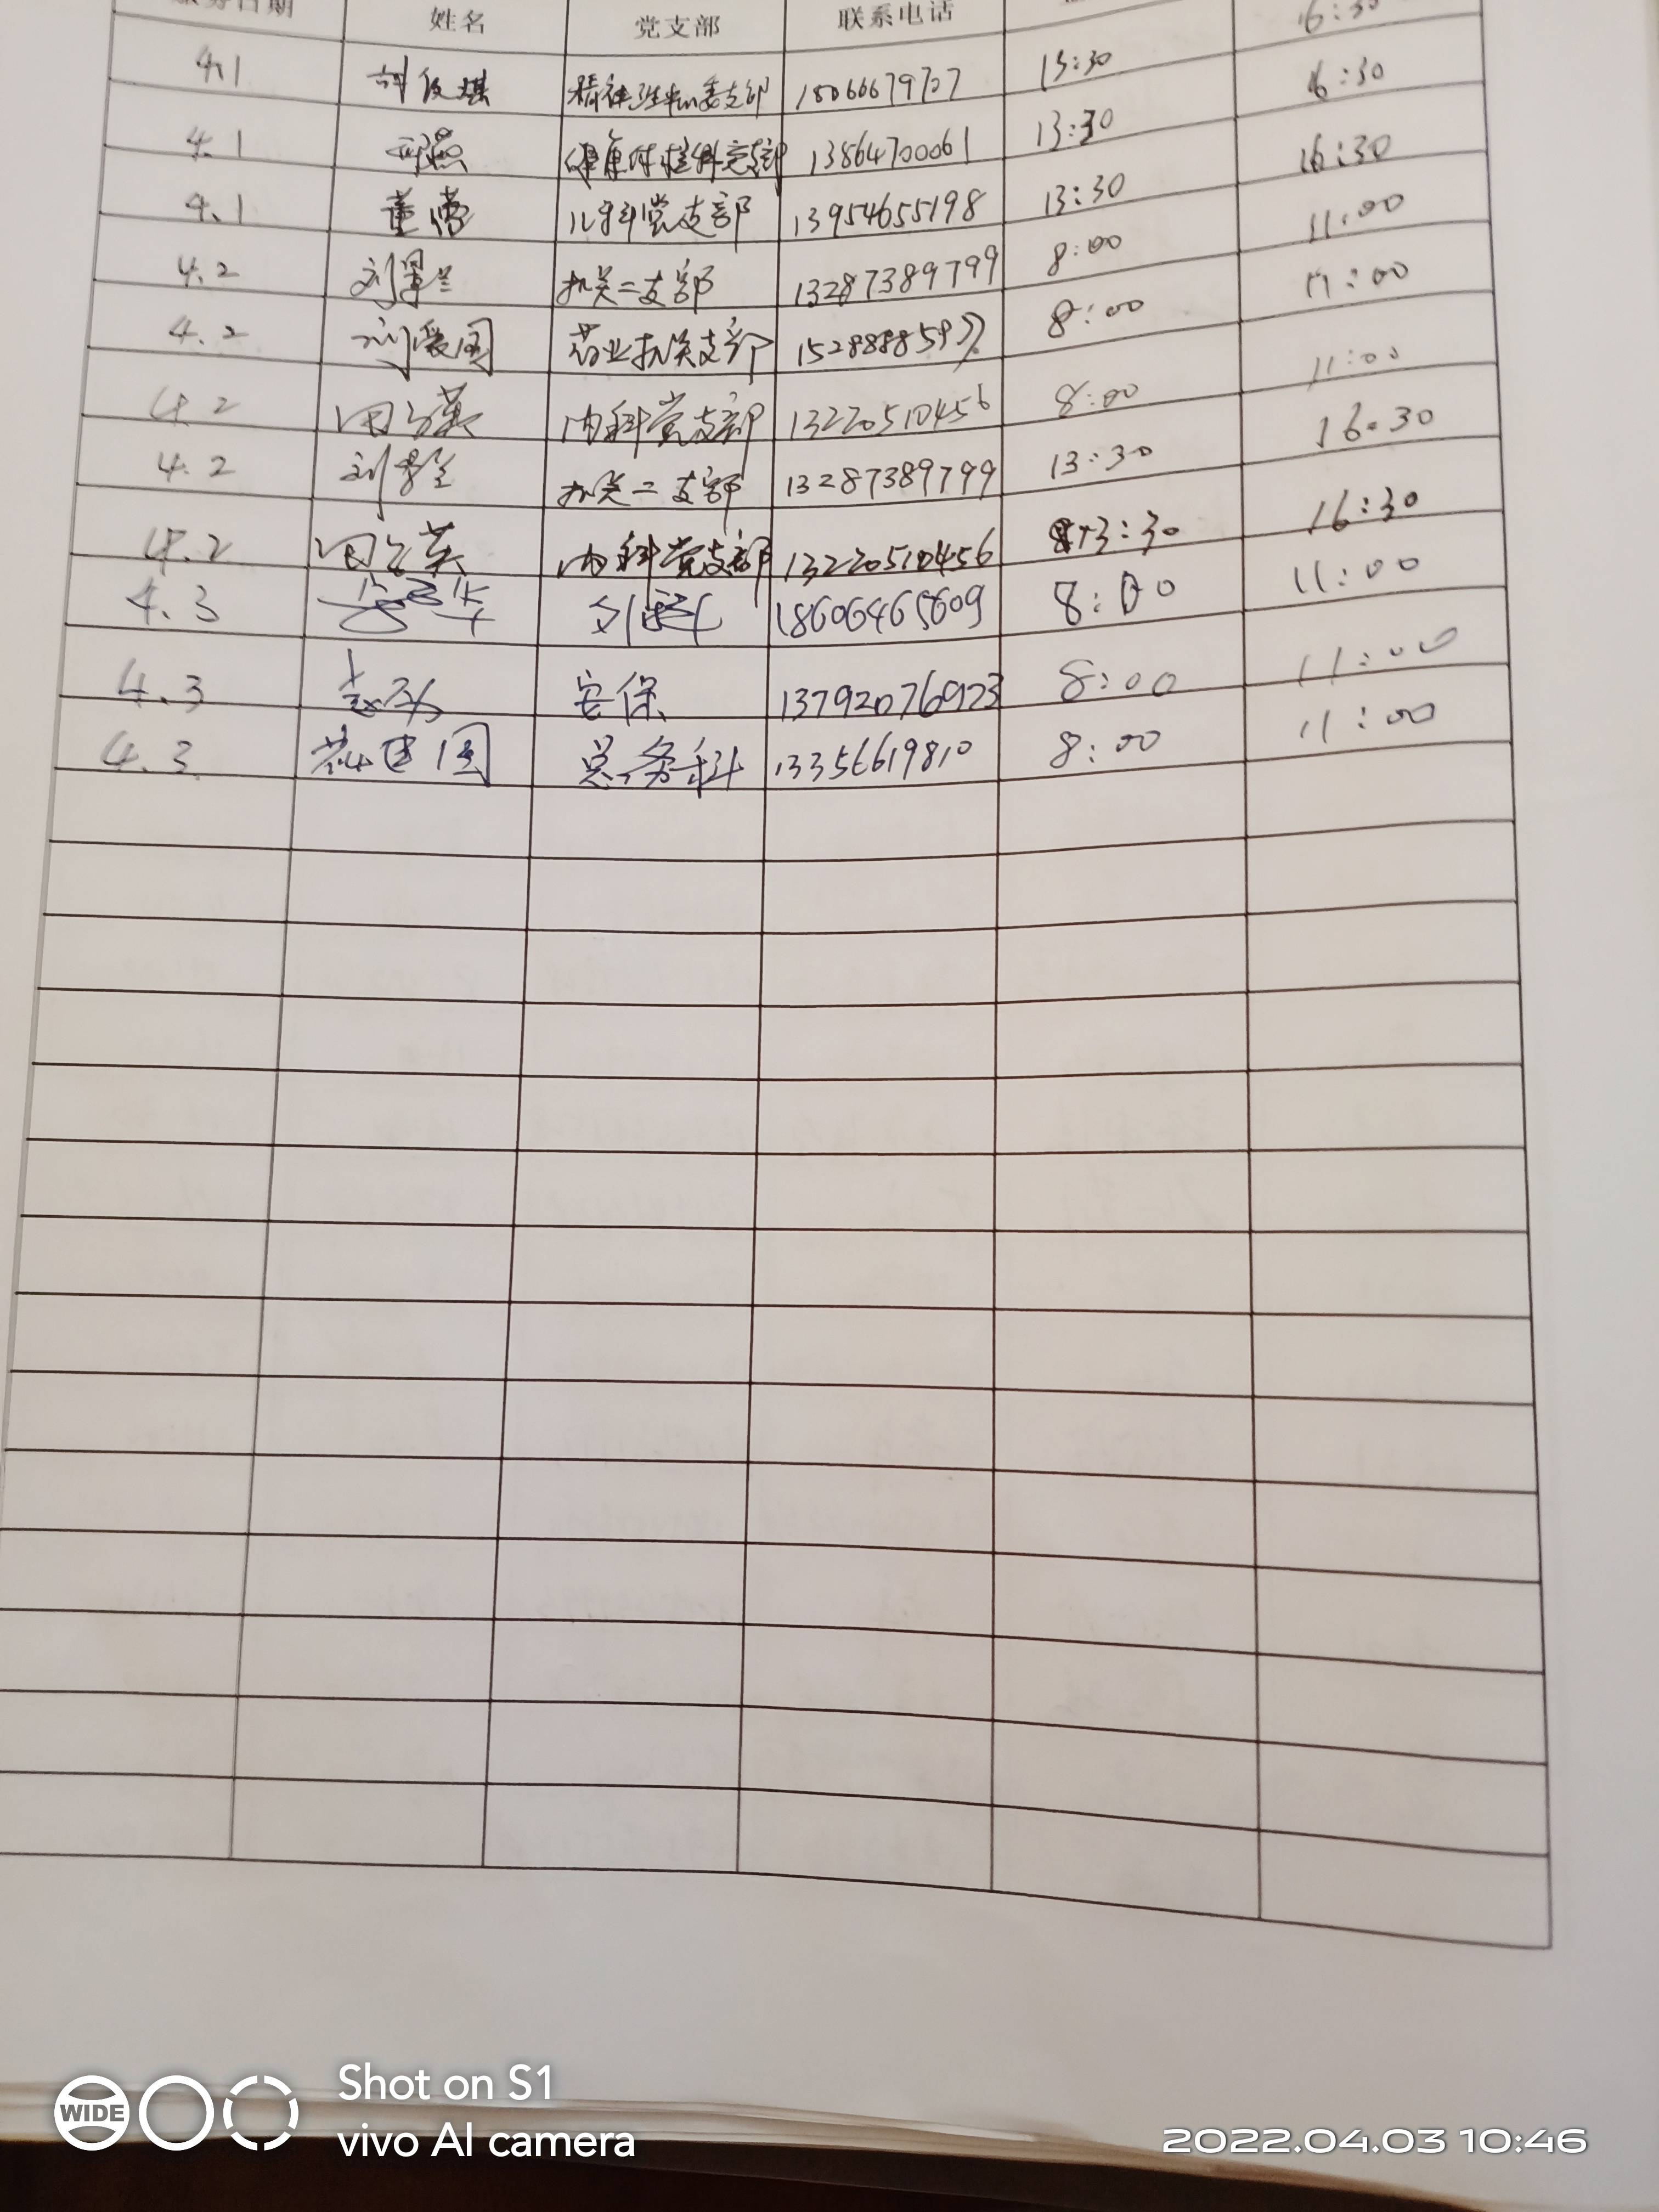 服务日期 姓名 党支部 联系电话
16:30
4.1 精神卫生中心支部 18066679707 13:30 16:30
4.1 健康体检科党支部 13864700061 13:30 16:30
4.1 董莹 儿科党支部 13954655198 13:30 11:00
4.2 刘翠兰 机关二支部 13287389799 8:00 11:00
4.2 刘爱国 药业机关支部 8:00
4.2 内科党支部 13220510456 8:00 11:00
4.2 机关二支部 13287389799 13:30 16:30
4.2 内科党支部 13220510456 13:30 16:30
4.3 18606465609 8:00 11:00
4.3 安保 13792076923 8:00 11:00
4.3 总务科 13356619810 8:00 11:00
WIDE
Shot on S1
vivo AI camera
2022.04.03 10:46